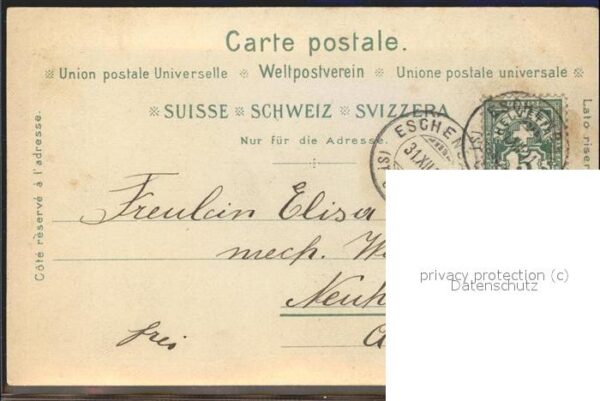 Carte postale.
Union postale Universelle Weltpostverein Unione postale universale
SUISSE SCHWEIZ SVIZZERA
Nur für die Adresse.
Côté réservé à l'adresse.
Lato riser
ESCHEN
31.XII
HELVETIA
Freulein Elisa
mech. W
Neuh
frei
privacy protection (c)
Datenschutz